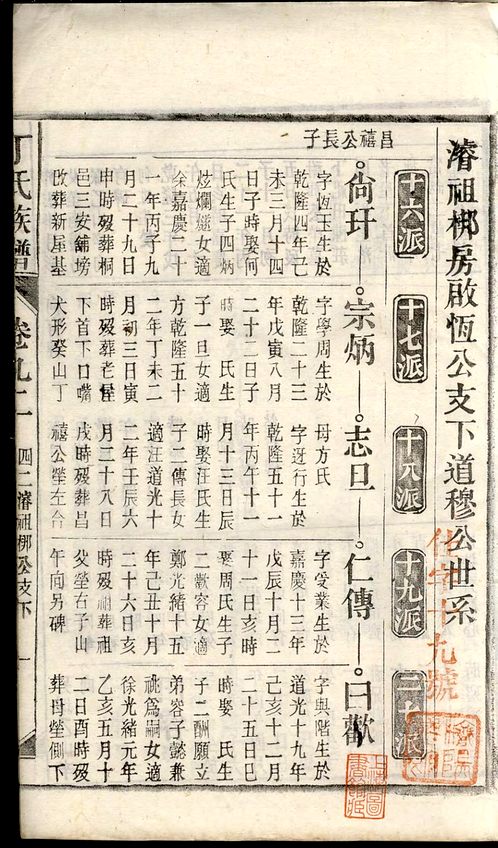 濬祖梆房啟恆公支下道穆公世系
十六派
十七派
十八派
十九派
二十派
昌禧公長子
尙玕
宗炳
志旦
仁傳
曰歡
字恆玉生於
乾隆四年己
未三月十四
日子時娶何
氏生子四炳
炫爛㷍女適
余嘉慶二十
一年丙子九
月二十九日
申時歿葬桐
邑三安鋪塝
改葬新屋基
字學周生於
乾隆二十三
年戊寅八月
二十二日子
時娶 氏生
子一旦女適
方乾隆五十
二年丁未二
月初三日寅
時歿葬老屋
下首下口嘴
犬形癸山丁
母方氏
字迓行生於
乾隆五十一
年丙午十一
月十三日辰
時娶汪氏生
子二傳長女
適汪道光十
二年壬辰六
月二十八日
戌時歿葬昌
禧公塋左合
字受業生於
嘉慶十三年
戊辰十二月
十一日亥時
娶周氏生子
二歡容女適
鄭光緒十五
年己丑十月
二十六日亥
時歿祔葬祖
父塋右子山
午向另碑
字與階生於
道光十九年
己亥十二月
二十五日巳
時娶 氏生
子二酬願立
弟容子懿兼
祧爲嗣女適
徐光緒元年
乙亥五月十
二日酉時歿
葬母塋側下
丁氏族譜
卷九二
四二濬祖梆公支下
一